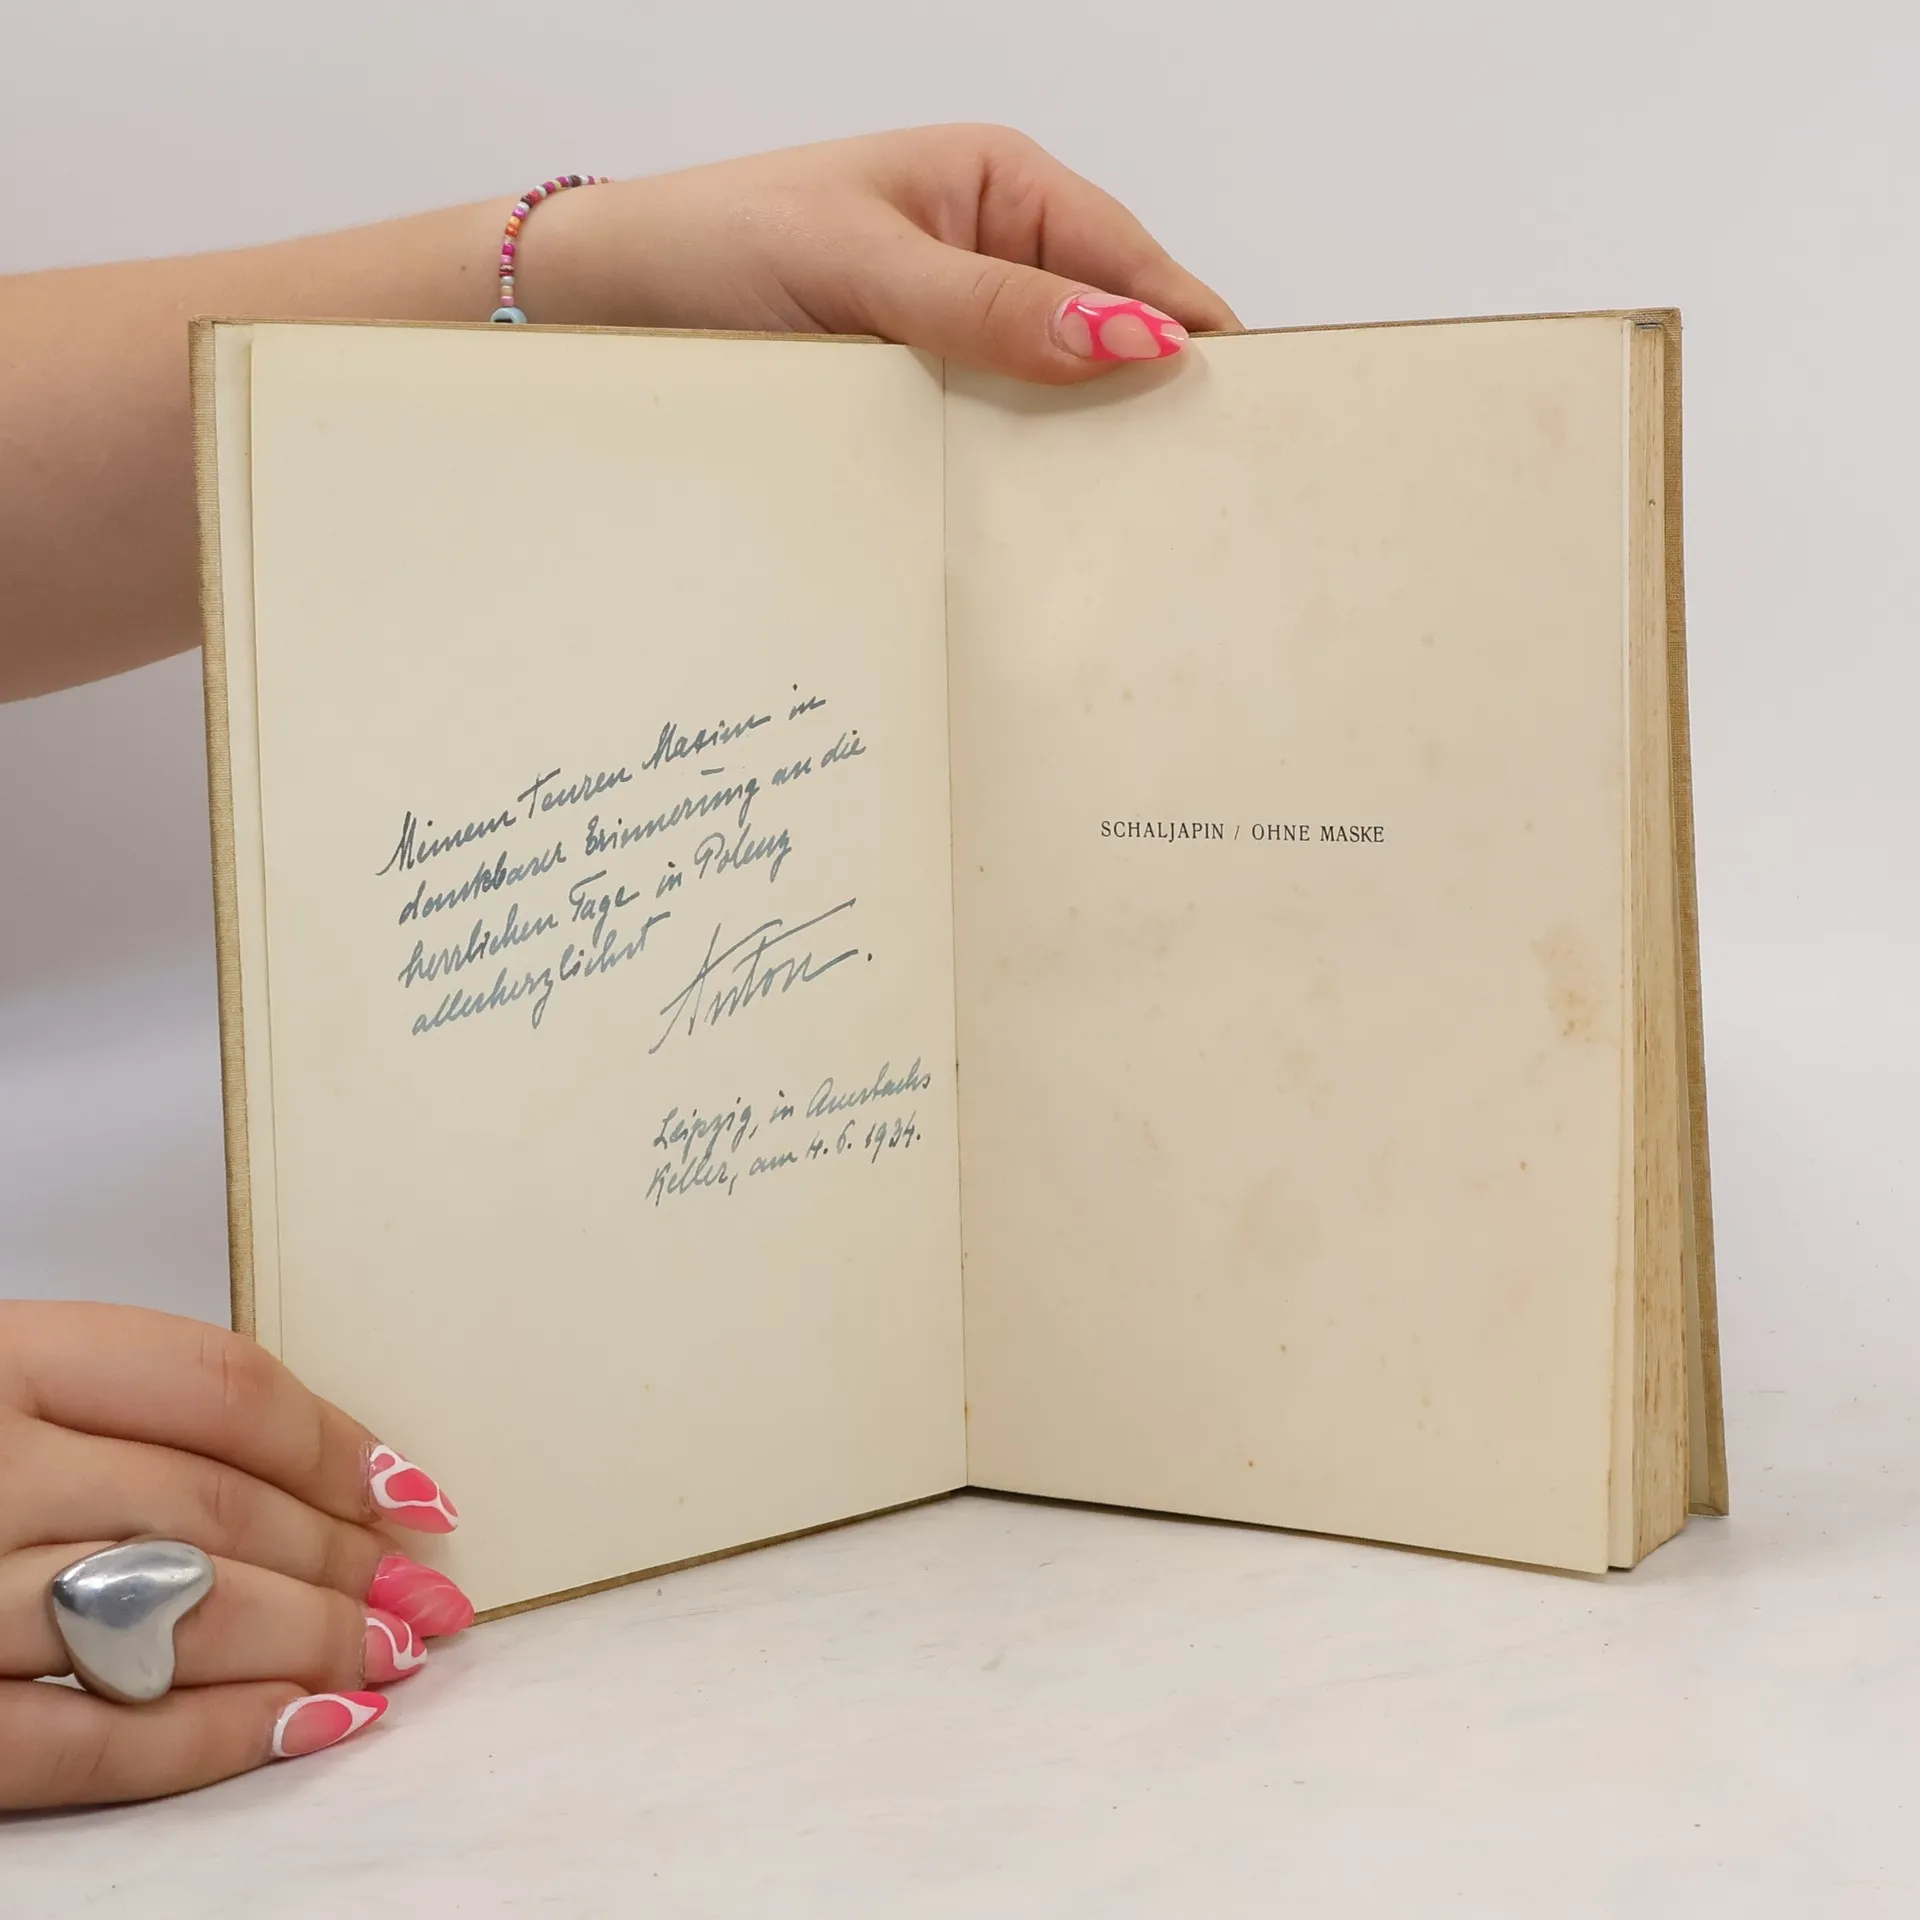 Meinem Teuren Maxim in
dankbarer Erinnerung an die
herrlichen Tage in Polenz
allerherzlichst
Anton.
Leipzig, in Auerbachs
Keller, am 4. 6. 1934.
SCHALJAPIN / OHNE MASKE